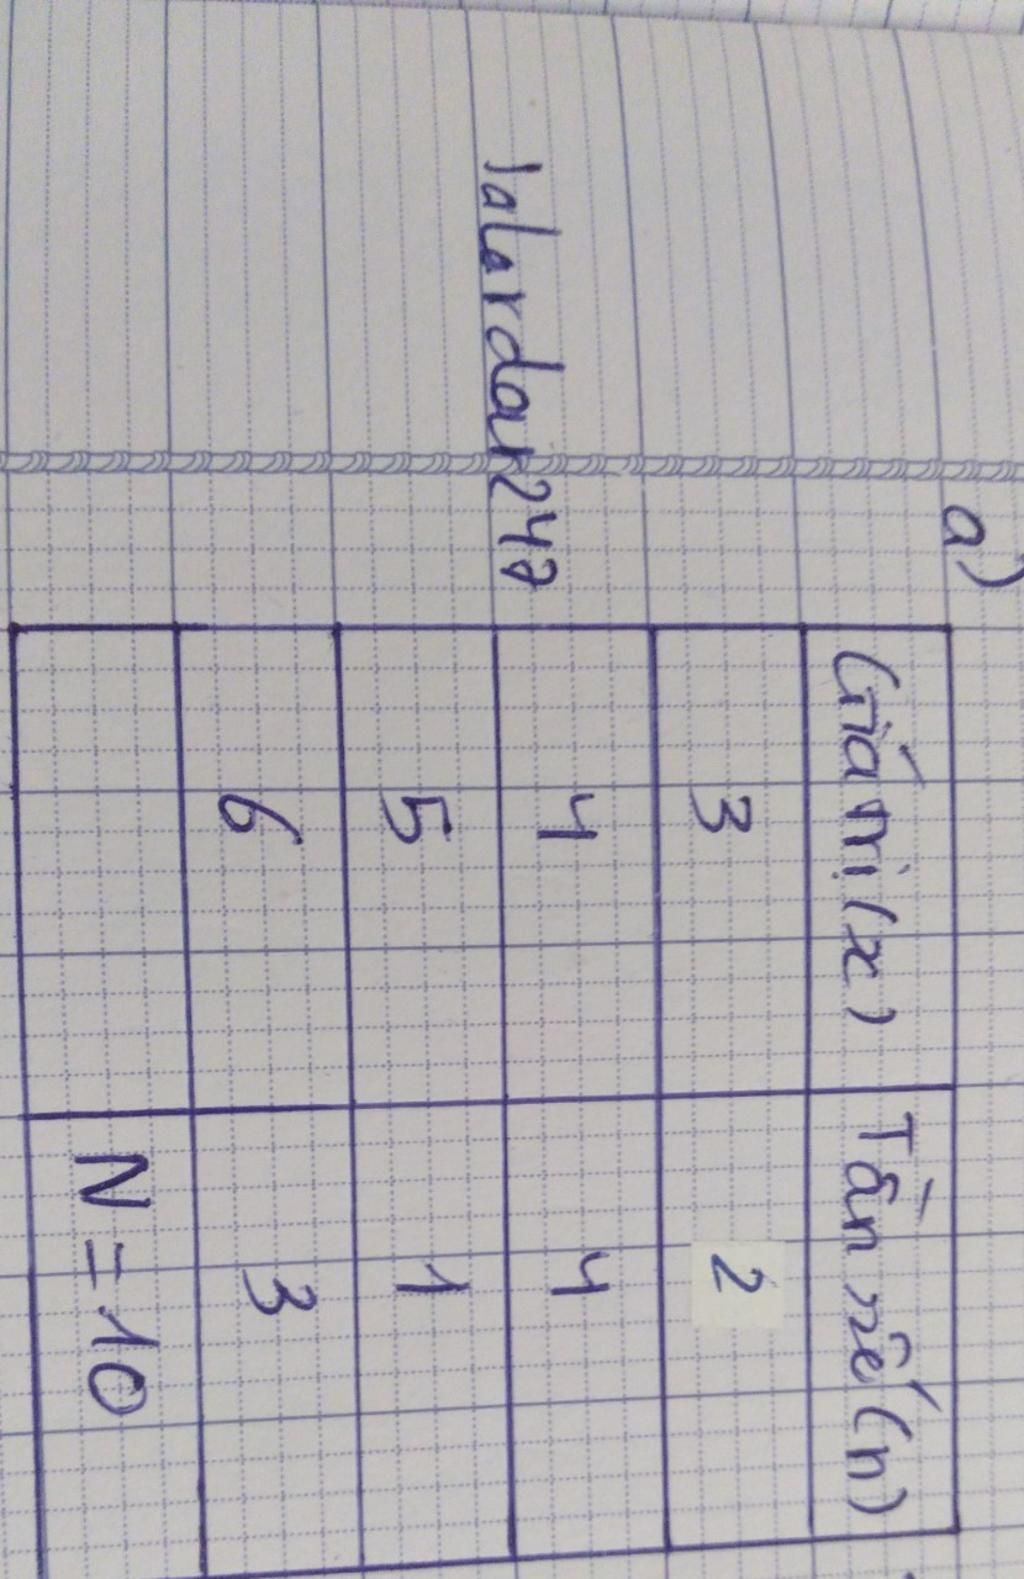 a)
Giá trị (x) Tần số (n)
3 2
4 4
5 1
6 3
N = 10